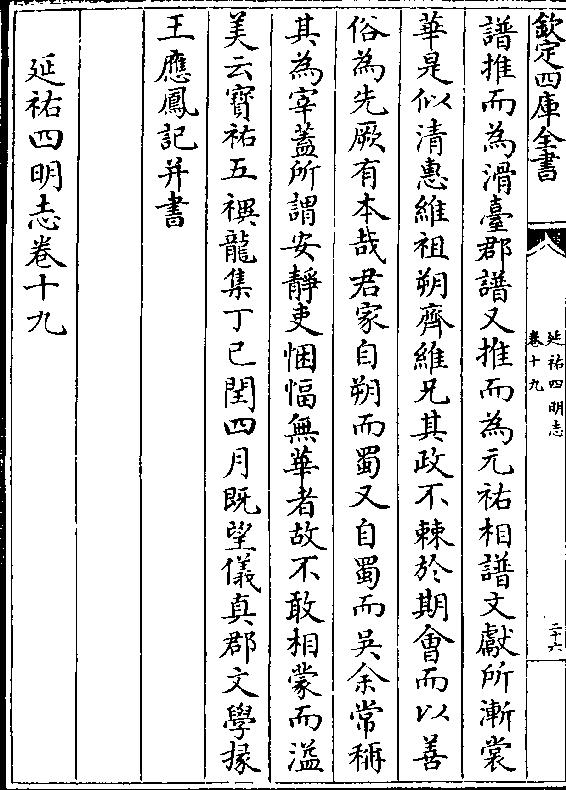 欽定四庫全書
延祐四明志
卷十九
二十六
譜推而為滑臺郡譜又推而為元祐相譜文獻所漸裳
華是似清惠維祖朔齊維兄其政不棘於期會而以善
俗為先厥有本哉君家自朔而蜀又自蜀而吳余常稱
其為宰蓋所謂安靜吏悃愊無華者故不敢相蒙而溢
美云寳祐五禩龍集丁已閏四月既望儀真郡文學掾
王應鳳記并書
延祐四明志卷十九